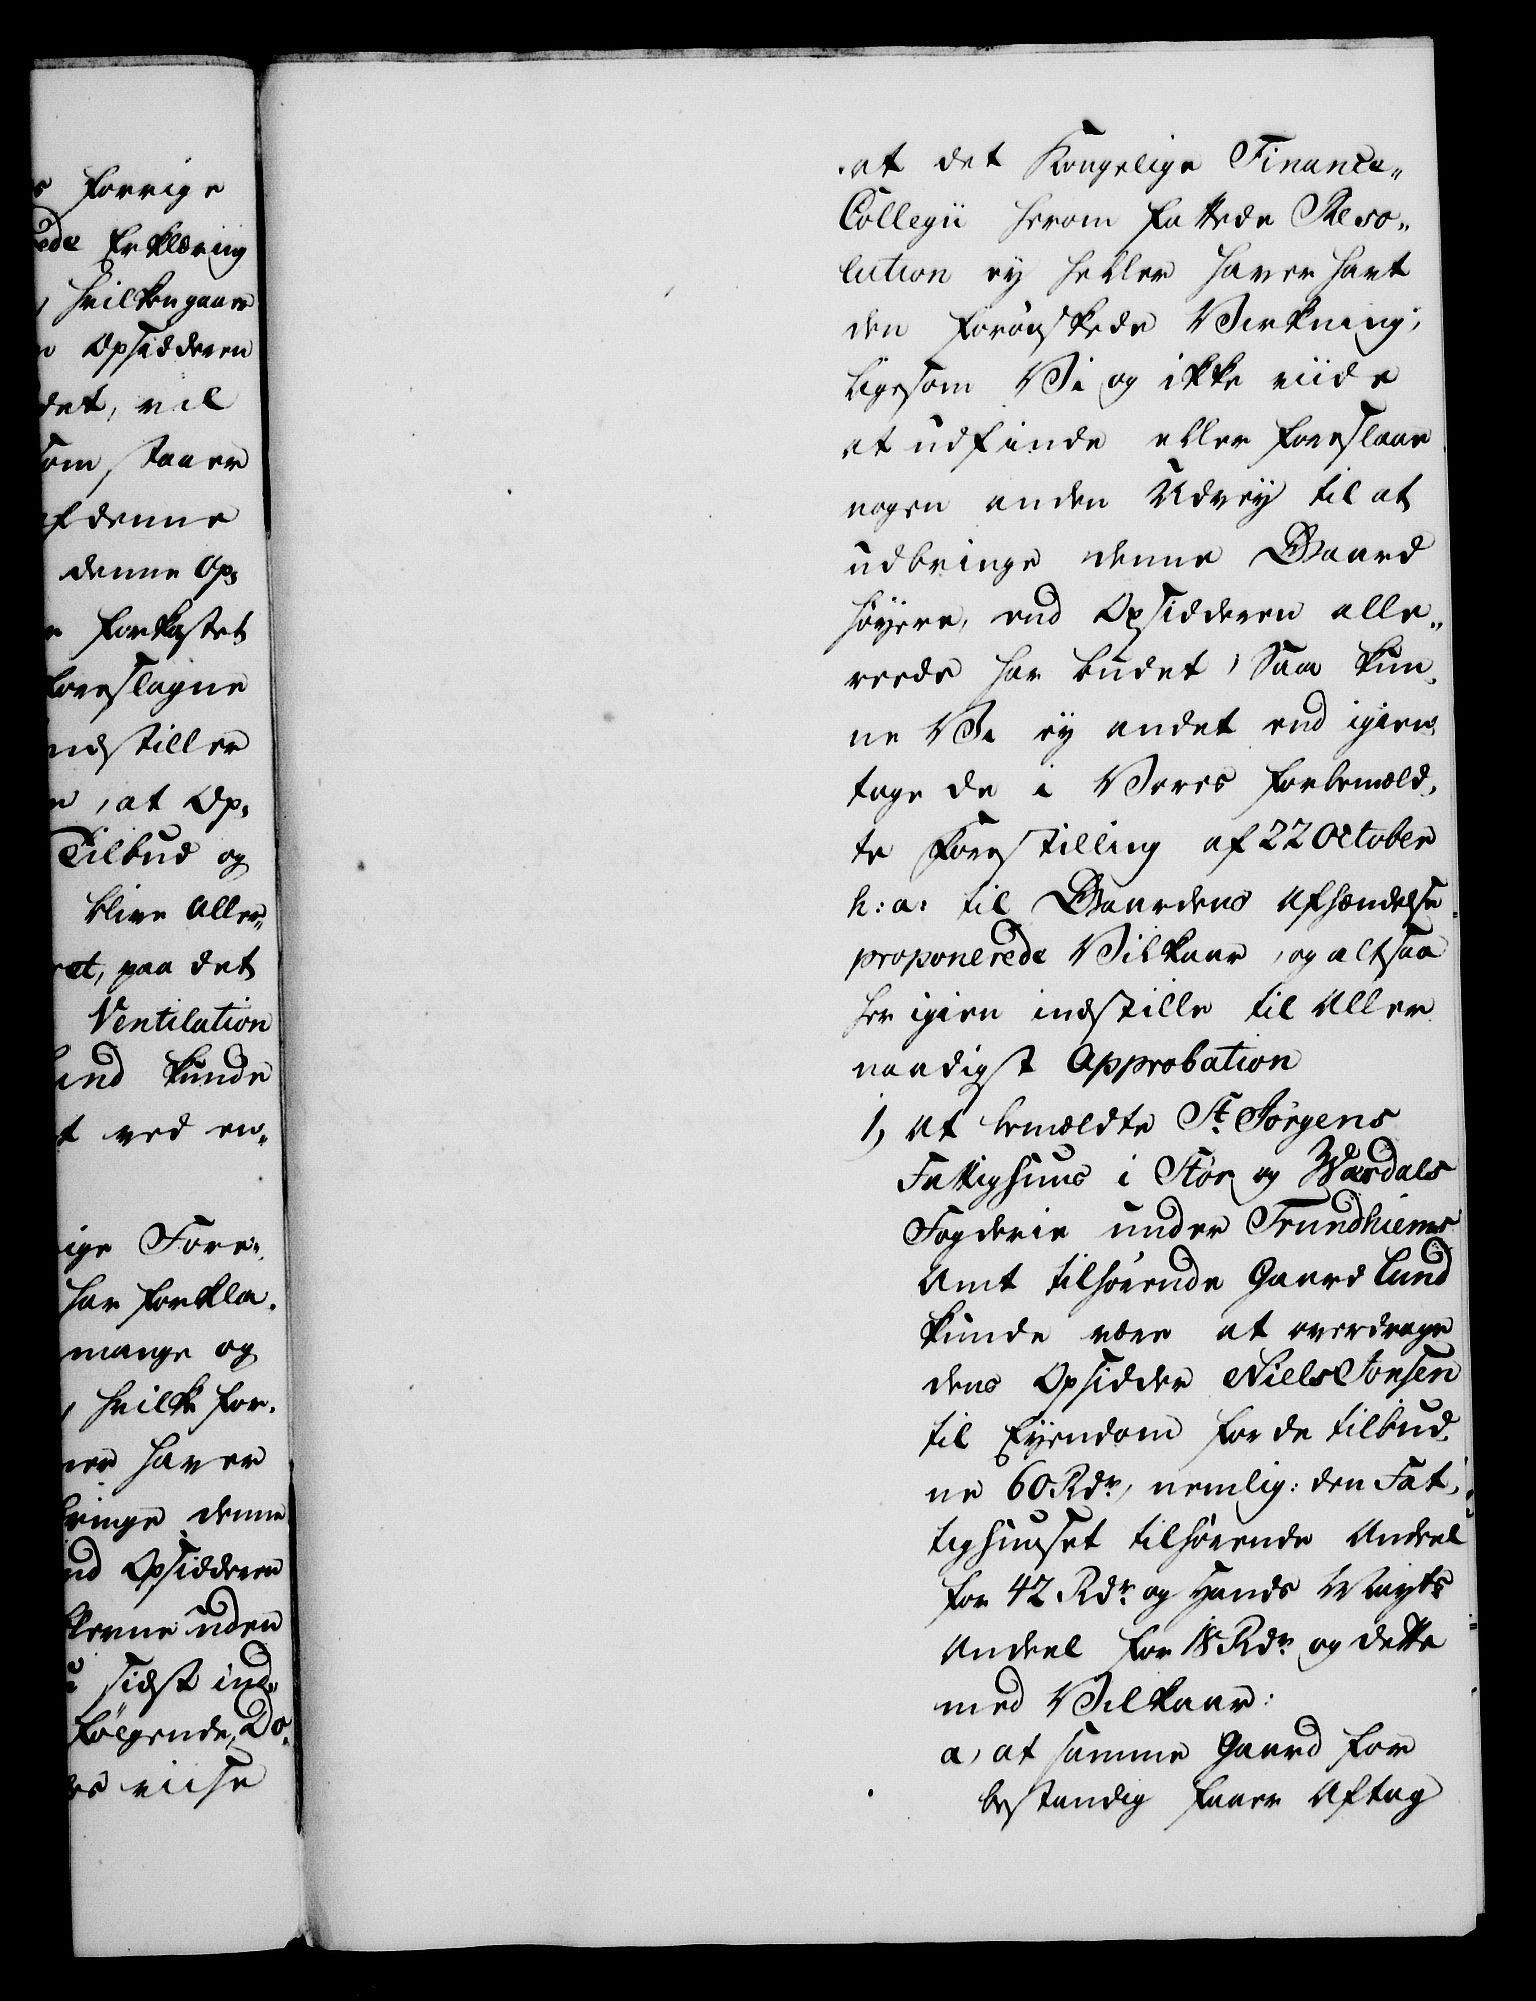 forrige
Erklæring
hvilken gaaer
Opsidderen
det, vil
som staaer
af denne
denne Op„
forkastet
foreslagne
indstiller
, at Op„
Tilbud og
blive Aller„
paa det
Ventilation
kunde
ved en„
Fore„
har forkla„
mange og
, hvilke for„
haver
denne
Opsidderen
uden
sidst ind„
følgende, Do„
viise
at det Kongelige Finance„
Collegii herom fattede Reso„
lution ey heller haver havt
den forønskede Virkning;
ligesom Vi og ikke viide
at udfinde eller foreslaae
nogen anden Udvey til at
udbringe denne Gaard
høyere, end Opsidderen alle„
reede har budet, Saa kun„
ne Vi ey andet end igien„
tage de i Vores forbemæld„
te Forestilling af 22 October
h: a: til Gaardens Afhændelse
proponerede Vilkaar, og altsaa
her igien indstille til Aller
naadigst Approbation
1, At bemældte St. Jørgens
Fattighuus i Stør og Værdals
Fogderie under Trundhiems
Amt tilhørende Gaard Lund
kunde være at overdrage
dens Opsidder Niels Jonsen
til Eyendom for de tilbud„
ne 60 Rdr, nemlig: den Fat„
tighuuset tilhørende Andeel
for 42 Rdr og Hans Mayts
Andeel for 18 Rdr og dette
med Vilkaar:
a, at samme Gaard for
bestandig faaer Aftag